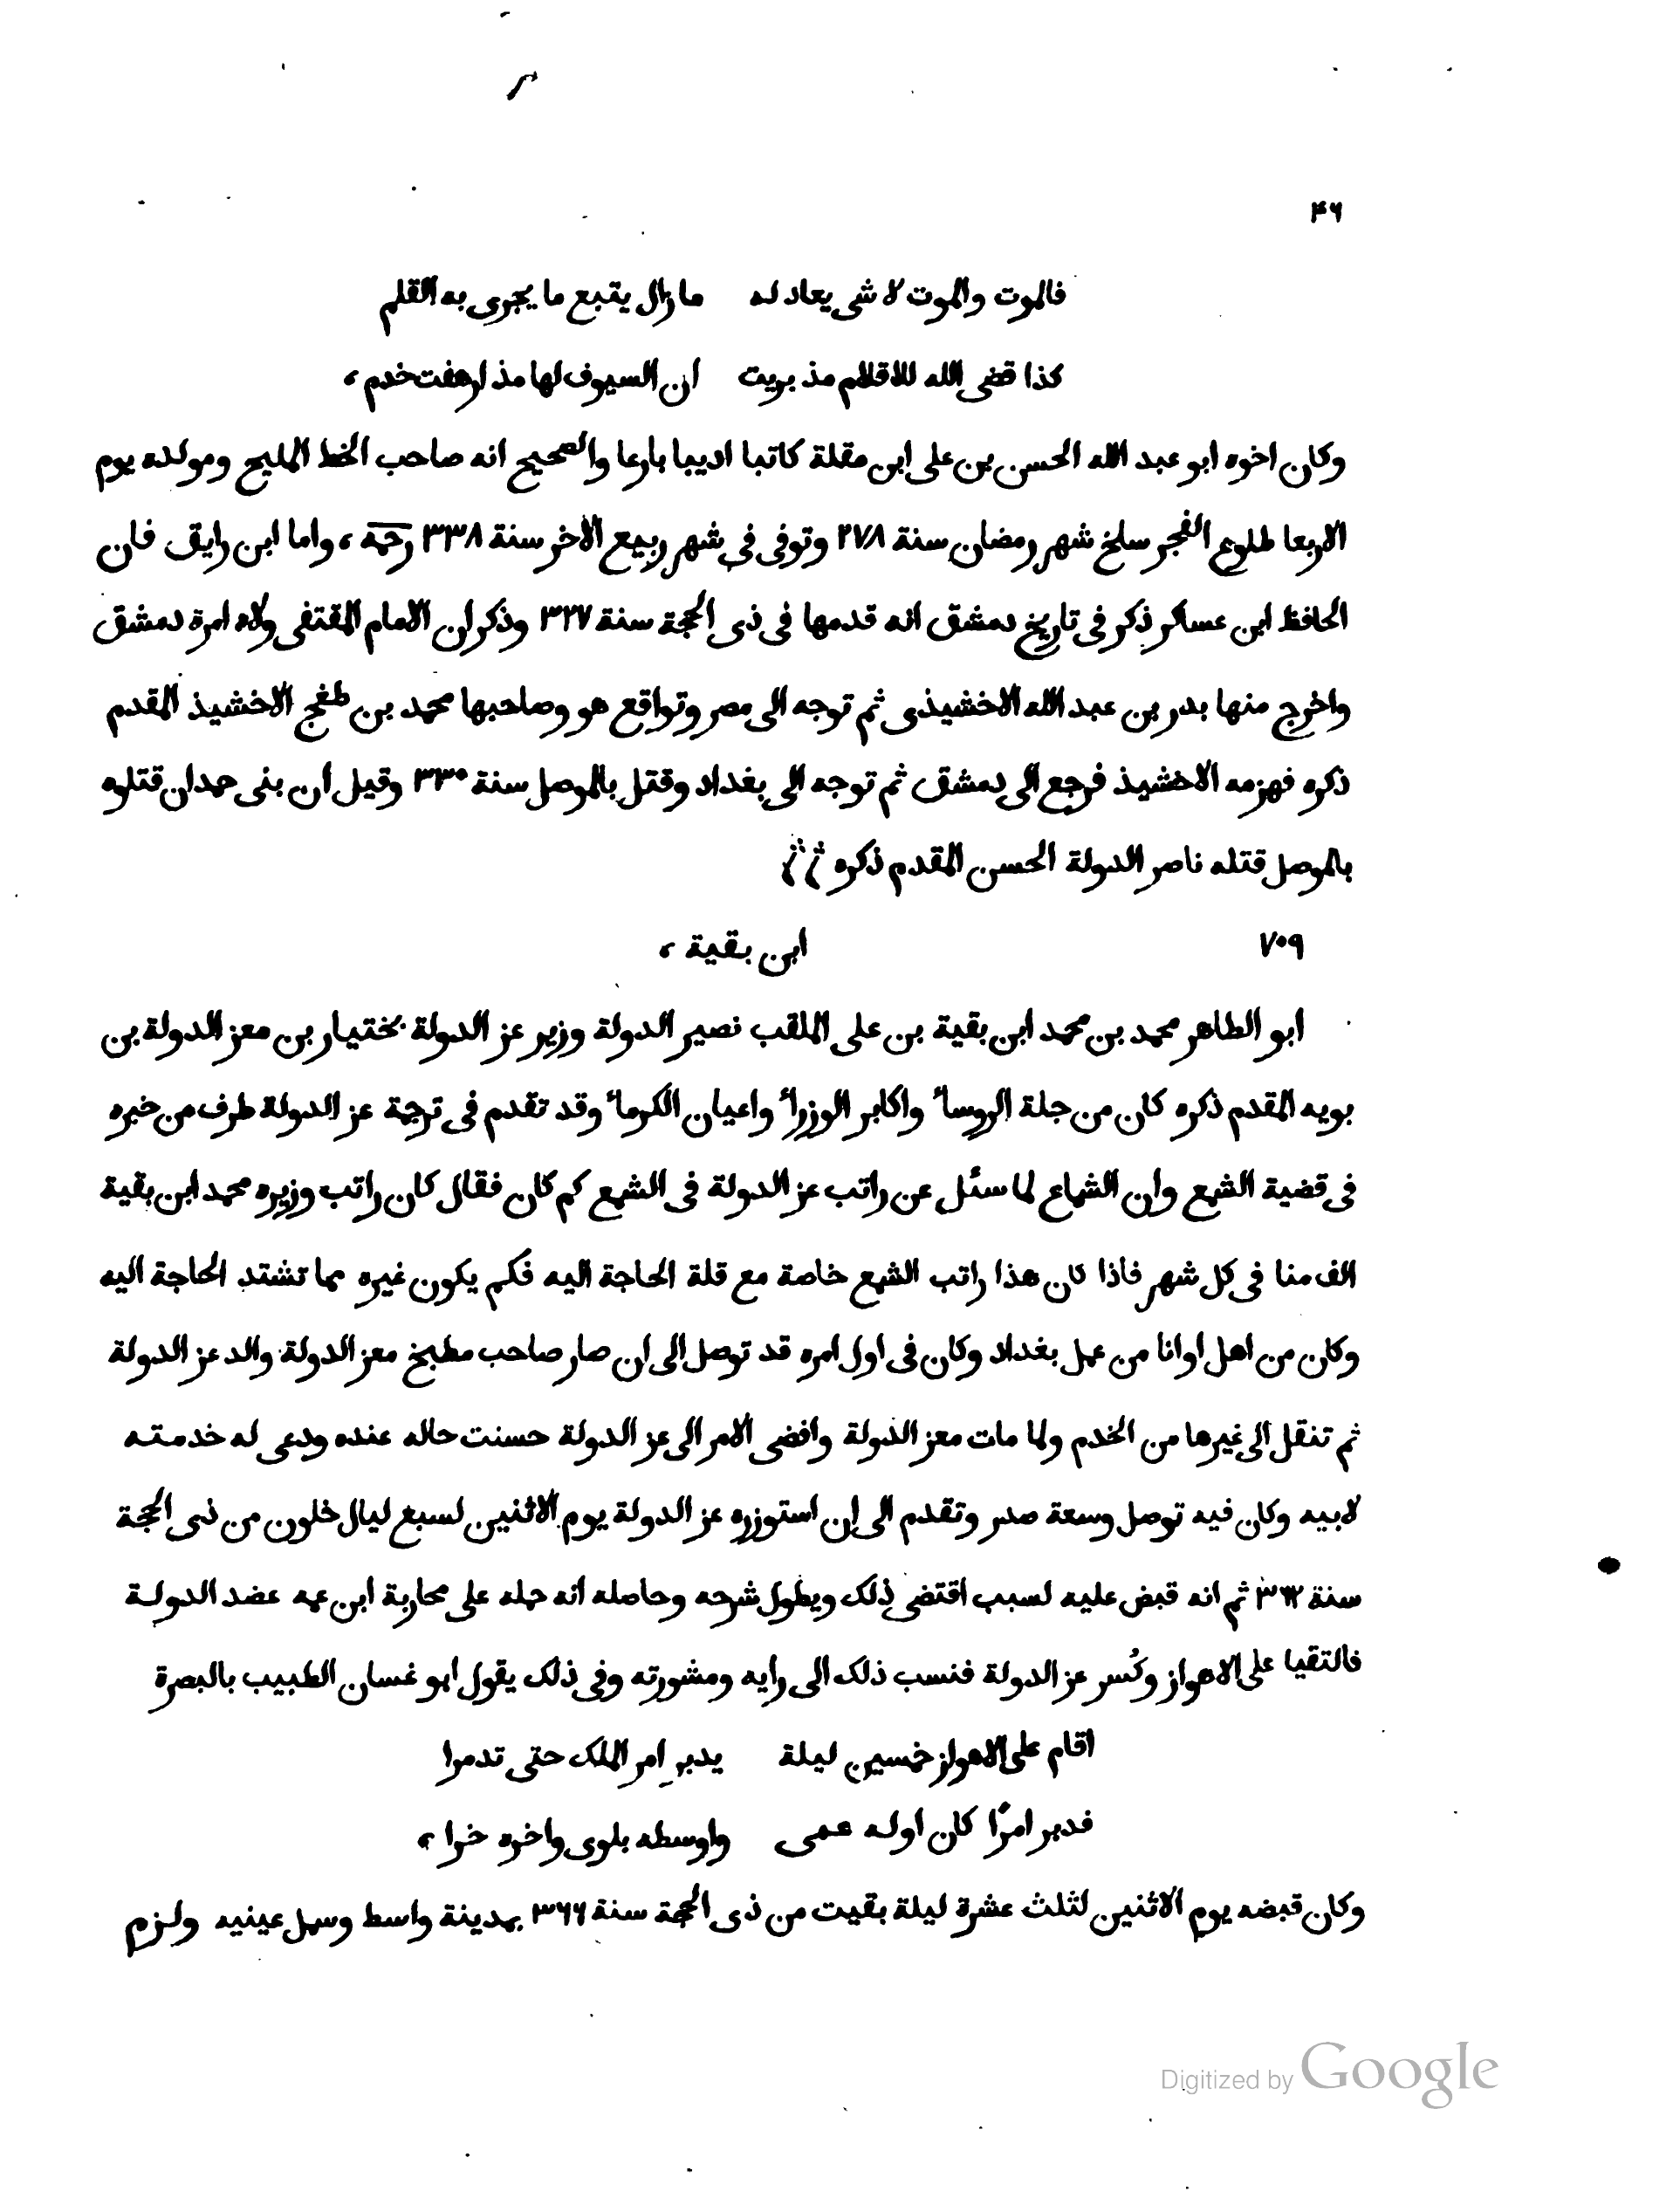 ۴۶
فالموت والموت لا شى يعادله ما زال يقبع ما يجرى به القلم
كذا قضى الله للاقلام مذ بريت ان السيوف لها مذ ارهفت خدم ،
وكان اخوه ابو عبد الله الحسن بن على ابن مقلة كاتبا اديبا بارعا والصحيح انه صاحب الخط المليح ومولده يوم
الاربعا طلوع الفجر سلخ شهر رمضان سنة ٢٧٨ وتوفى فى شهر ربيع الاخر سنة ٣٣٨ رحمة ، واما ابن رايق فان
الحافظ ابن عساكر ذكر فى تاريخ دمشق انه قدمها فى ذى الحجة سنة ٣٢٧ وذكر ان الامام المقتفى ولاه امرة دمشق
واخرج منها بدر بن عبد الله الاخشيذى ثم توجه الى مصر وتواقع هو وصاحبها محمد بن طغج الاخشيذ المقدم
ذكره فهزمه الاخشيذ فرجع الى دمشق ثم توجه الى بغداد وقتل بالموصل سنة ٣٣٠ وقيل ان بنى حمدان قتلوه
بالموصل قتله ناصر الدولة الحسن المقدم ذكره
٧٠٩ ابن بقية ،
ابو الطاهر محمد بن محمد ابن بقية بن على الملقب نصير الدولة وزير عز الدولة بختيار بن معز الدولة بن
بويه المقدم ذكره كان من جلة الروساء واكابر الوزراء واعيان الكرماء وقد تقدم فى ترجمة عز الدولة طرف من خبره
فى قضية الشمع وان الشماع لما سئل عن راتب عز الدولة فى الشمع كم كان فقال كان راتب وزيره محمد ابن بقية
الف منا فى كل شهر فاذا كان هذا راتب الشمع خاصة مع قلة الحاجة اليه فكم يكون غيره مما تشتد الحاجة اليه
وكان من اهل اوانا من عمل بغداد وكان فى اول امره قد توصل الى ان صار صاحب مطبخ معز الدولة والد عز الدولة
ثم تنقل الى غيرها من الخدم ولما مات معز الدولة وافضى الامر الى عز الدولة حسنت حاله عنده ودعى له خدمته
لابيه وكان فيه توصل وسعة صدر وتقدم الى ان استوزره عز الدولة يوم الاثنين لسبع ليال خلون من ذى الحجة
سنة ٣٦٢ ثم انه قبض عليه لسبب اقتضى ذلك ويطول شرحه وحاصله انه حمله على محاربة ابن عمه عضد الدولة
فالتقيا على الاهواز وكُسر عز الدولة فنسب ذلك الى رايه ومشورته وفى ذلك يقول ابو غسان الطبيب بالبصرة
اقام على الاهواز خمسين ليلة يدبر امر الملك حتى تدمرا
فدبر امرًا كان اوله عمى واوسطه بلوى واخره خرا ،
وكان قبضه يوم الاثنين لثلث عشرة ليلة بقيت من ذى الحجة سنة ٣٦٦ بمدينة واسط وسمل عينيه ولزم
Digitized by Google